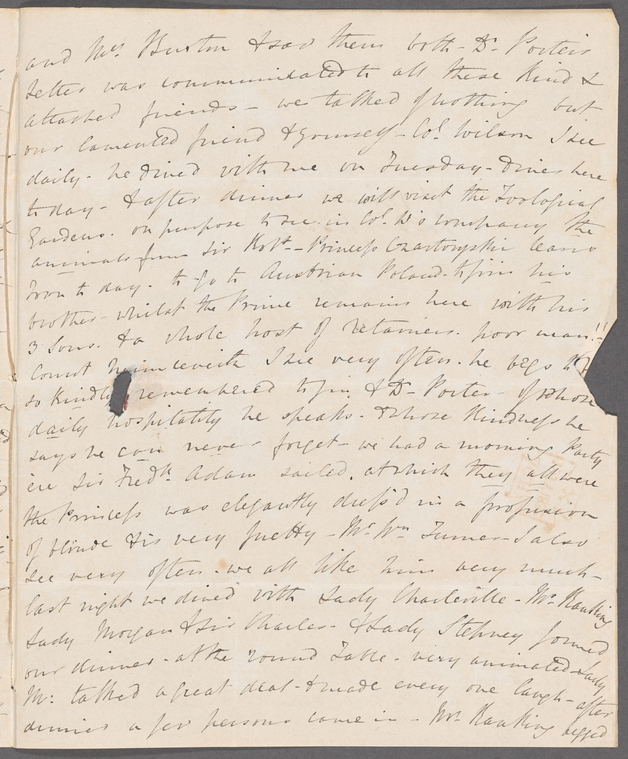 and Mrs. Burton & saw them both - Dr. Porter's
letter was communicated to all these kind &
attached friends - we talked of nothing but
our lamented friend & yourself - Col. Wilson I see
daily - he dined with me on Tuesday - dines here
to day - & after dinner we will visit the Zoological
Gardens. on purpose to see in Col. W's company the
animals from Sir Robt. - Princess Czartoryski leaves
town to day - to go to Austrian Poland - to join his
brother - whilst the Prince remains here with his
3 Sons. & a whole host of retainers. poor man!!
Count I see very often - he begs to
so kindly remembered to you & Dr. Porter - of whose
daily hospitality he speaks - & whose kindness he
says he can never forget - we had a morning Party
ere Sir Fredk. Adam sailed, at which they all were
the Princess was elegantly dress'd in a profusion
of blonde & is very pretty - Mr. Wm. Turner I also
see very often - we all like him very much -
last night we dined with Lady Charleville - Mr. Hawking
Lady Morgan & Sir Charles - & Lady Stepney formed
our dinner - at the round Table - very animated & Lady
M: talked a great deal - & made every one laugh - after
dinner a few persons came in - Mr. Hawking begged